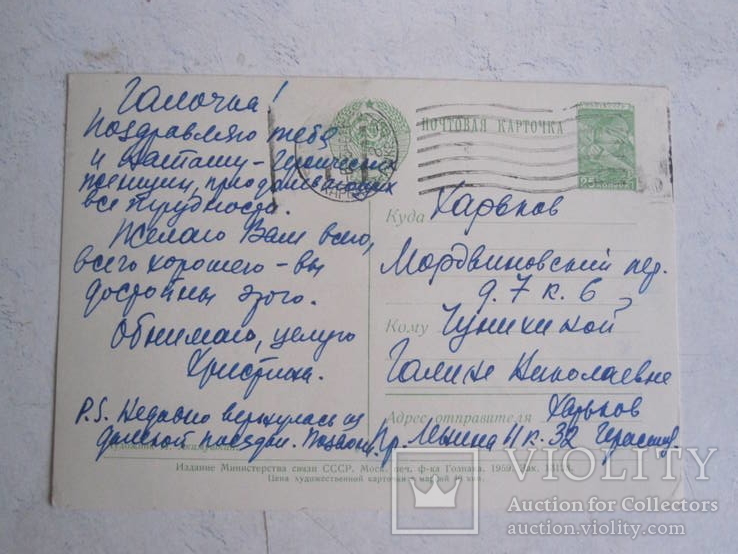 Галочка!
Поздравляю тебя
и Наташу - героических
женщин, преодолевающих
все трудности.
Желаю Вам всего,
всего хорошего - вы
достойны этого.
Обнимаю, целую
Христина.
P.S. Недавно вернулась из
далекой поездки. Позвони.
ПОЧТОВАЯ КАРТОЧКА
Куда Харьков
Мордвиновский пер.
д. 7 к. 6
Кому
Галине Николаевне
Адрес отправителя Харьков
Пр. Ленина 11 к. 32
Издание Министерства связи СССР. Моск. печ. ф-ка Гознака. 1959.
Цена художественной карточки с маркой 40 коп.
VIOLITY
Auction for Collectors
auction.violity.com